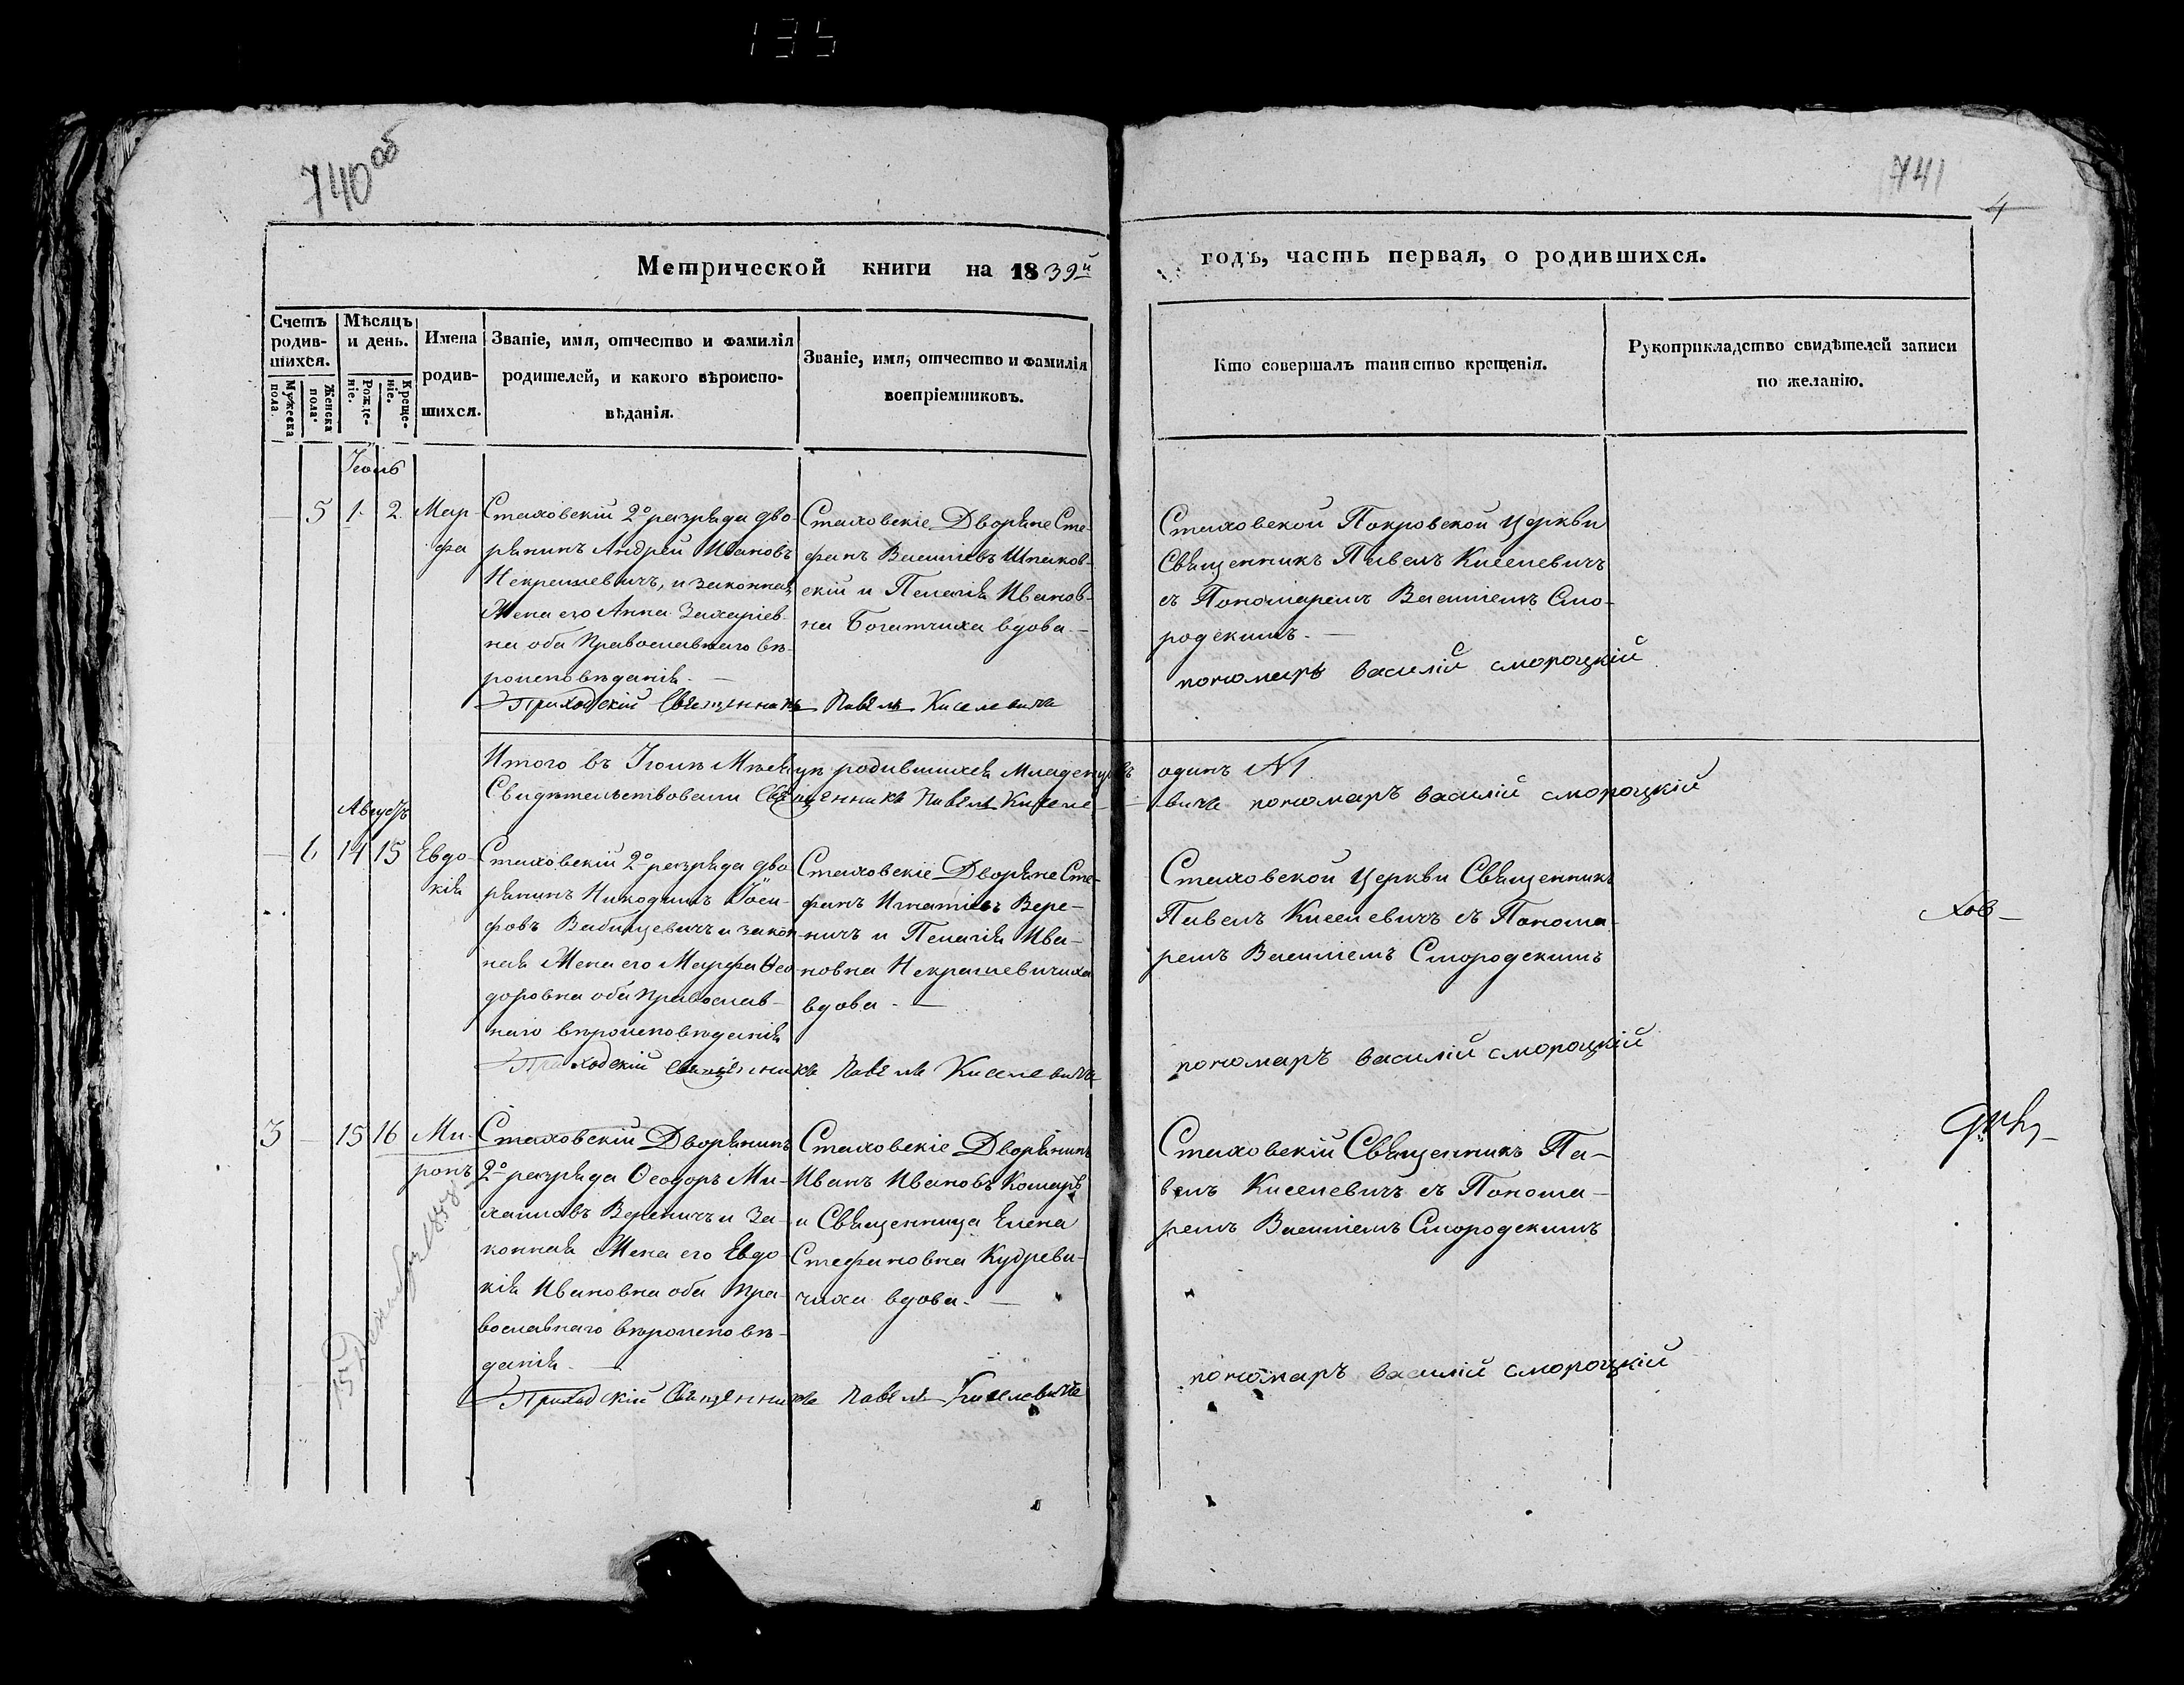 135
740 об
741
4
Метрической книги на 1839й годъ, часть первая, о родившихся.
Счетъ родив-шихся.
Мужеска пола.
Женска пола.
Мѣсяцъ и день.
Рожде-ніе.
Креще-ніе.
Имена родив-шихся.
Званіе, имя, отчество и фамилія
родителей, и какого вѣроиспо-
вѣданія.
Званіе, имя, отчество и фамилія
воспріемниковъ.
Кто совершалъ таинство крещенія.
Рукоприкладство свидѣтелей записи
по желанію.
Іюль
5 1. 2. Мар-
фа
Стаховскій 2го разряда дво-
рянинъ Андрей Ивановъ
Некрашевичъ, и законная
Жена его Анна Захаріев-
на оба Православнаго вѣ-
роисповѣданія. —
Стаховскіе Дворяне Сте-
фанъ Василіевъ Шпаков-
скій и Пелагія Иванов-
на Богатчиха вдова. —
Стаховской Покровской Церкви
Священникъ Павелъ Киселевичъ
съ Пономаремъ Василіемъ Смо-
родскимъ. —
пономаръ василій смороцкій
Приходскій Священникъ Павелъ Киселевичъ
Итого въ Іюлѣ Мѣсяцѣ родившихся Младенцовъ одинъ №1.
Свидѣтельствовали Священникъ Павелъ Киселе- вичъ пономаръ василій смороцкій
Августъ
6 14 15 Евдо-
кія
Стаховскій 2го разряда дво-
рянинъ Никодимъ Іоси-
фовъ Вабищевичъ и закон-
ная Жена его Марфа Ѳео-
доровна оба Православ-
наго вѣроисповѣданія
Стаховскіе Дворяне Сте-
фанъ Игнатіевъ Вере-
ничъ и Пелагія Ива-
новна Некрашевичиха
вдова. —
Стаховской Церкви Священникъ
Павелъ Киселевичъ съ Понома-
ремъ Василіемъ Смородскимъ
хов-
пономаръ василій смороцкій
Приходскій Священникъ Павелъ Киселевичъ
3 — 15 16 Ми-
ронъ
Стаховскій Дворянинъ
2го разряда Ѳеодоръ Ми-
хаиловъ Вереничъ и За-
конная Жена его Евдо-
кія Ивановна оба Пра-
вославнаго вѣроисповѣ-
данія. —
Стаховскіе Дворянинъ
Иванъ Ивановъ Комаръ
и Священница Елена
Стефановна Кудреви-
чиха вдова. —
Стаховскій Священникъ Па-
велъ Киселевичъ съ Понома-
ремъ Василіемъ Смородскимъ
пономаръ василій смороцкій
Приходскій Священникъ Павелъ Киселевичъ